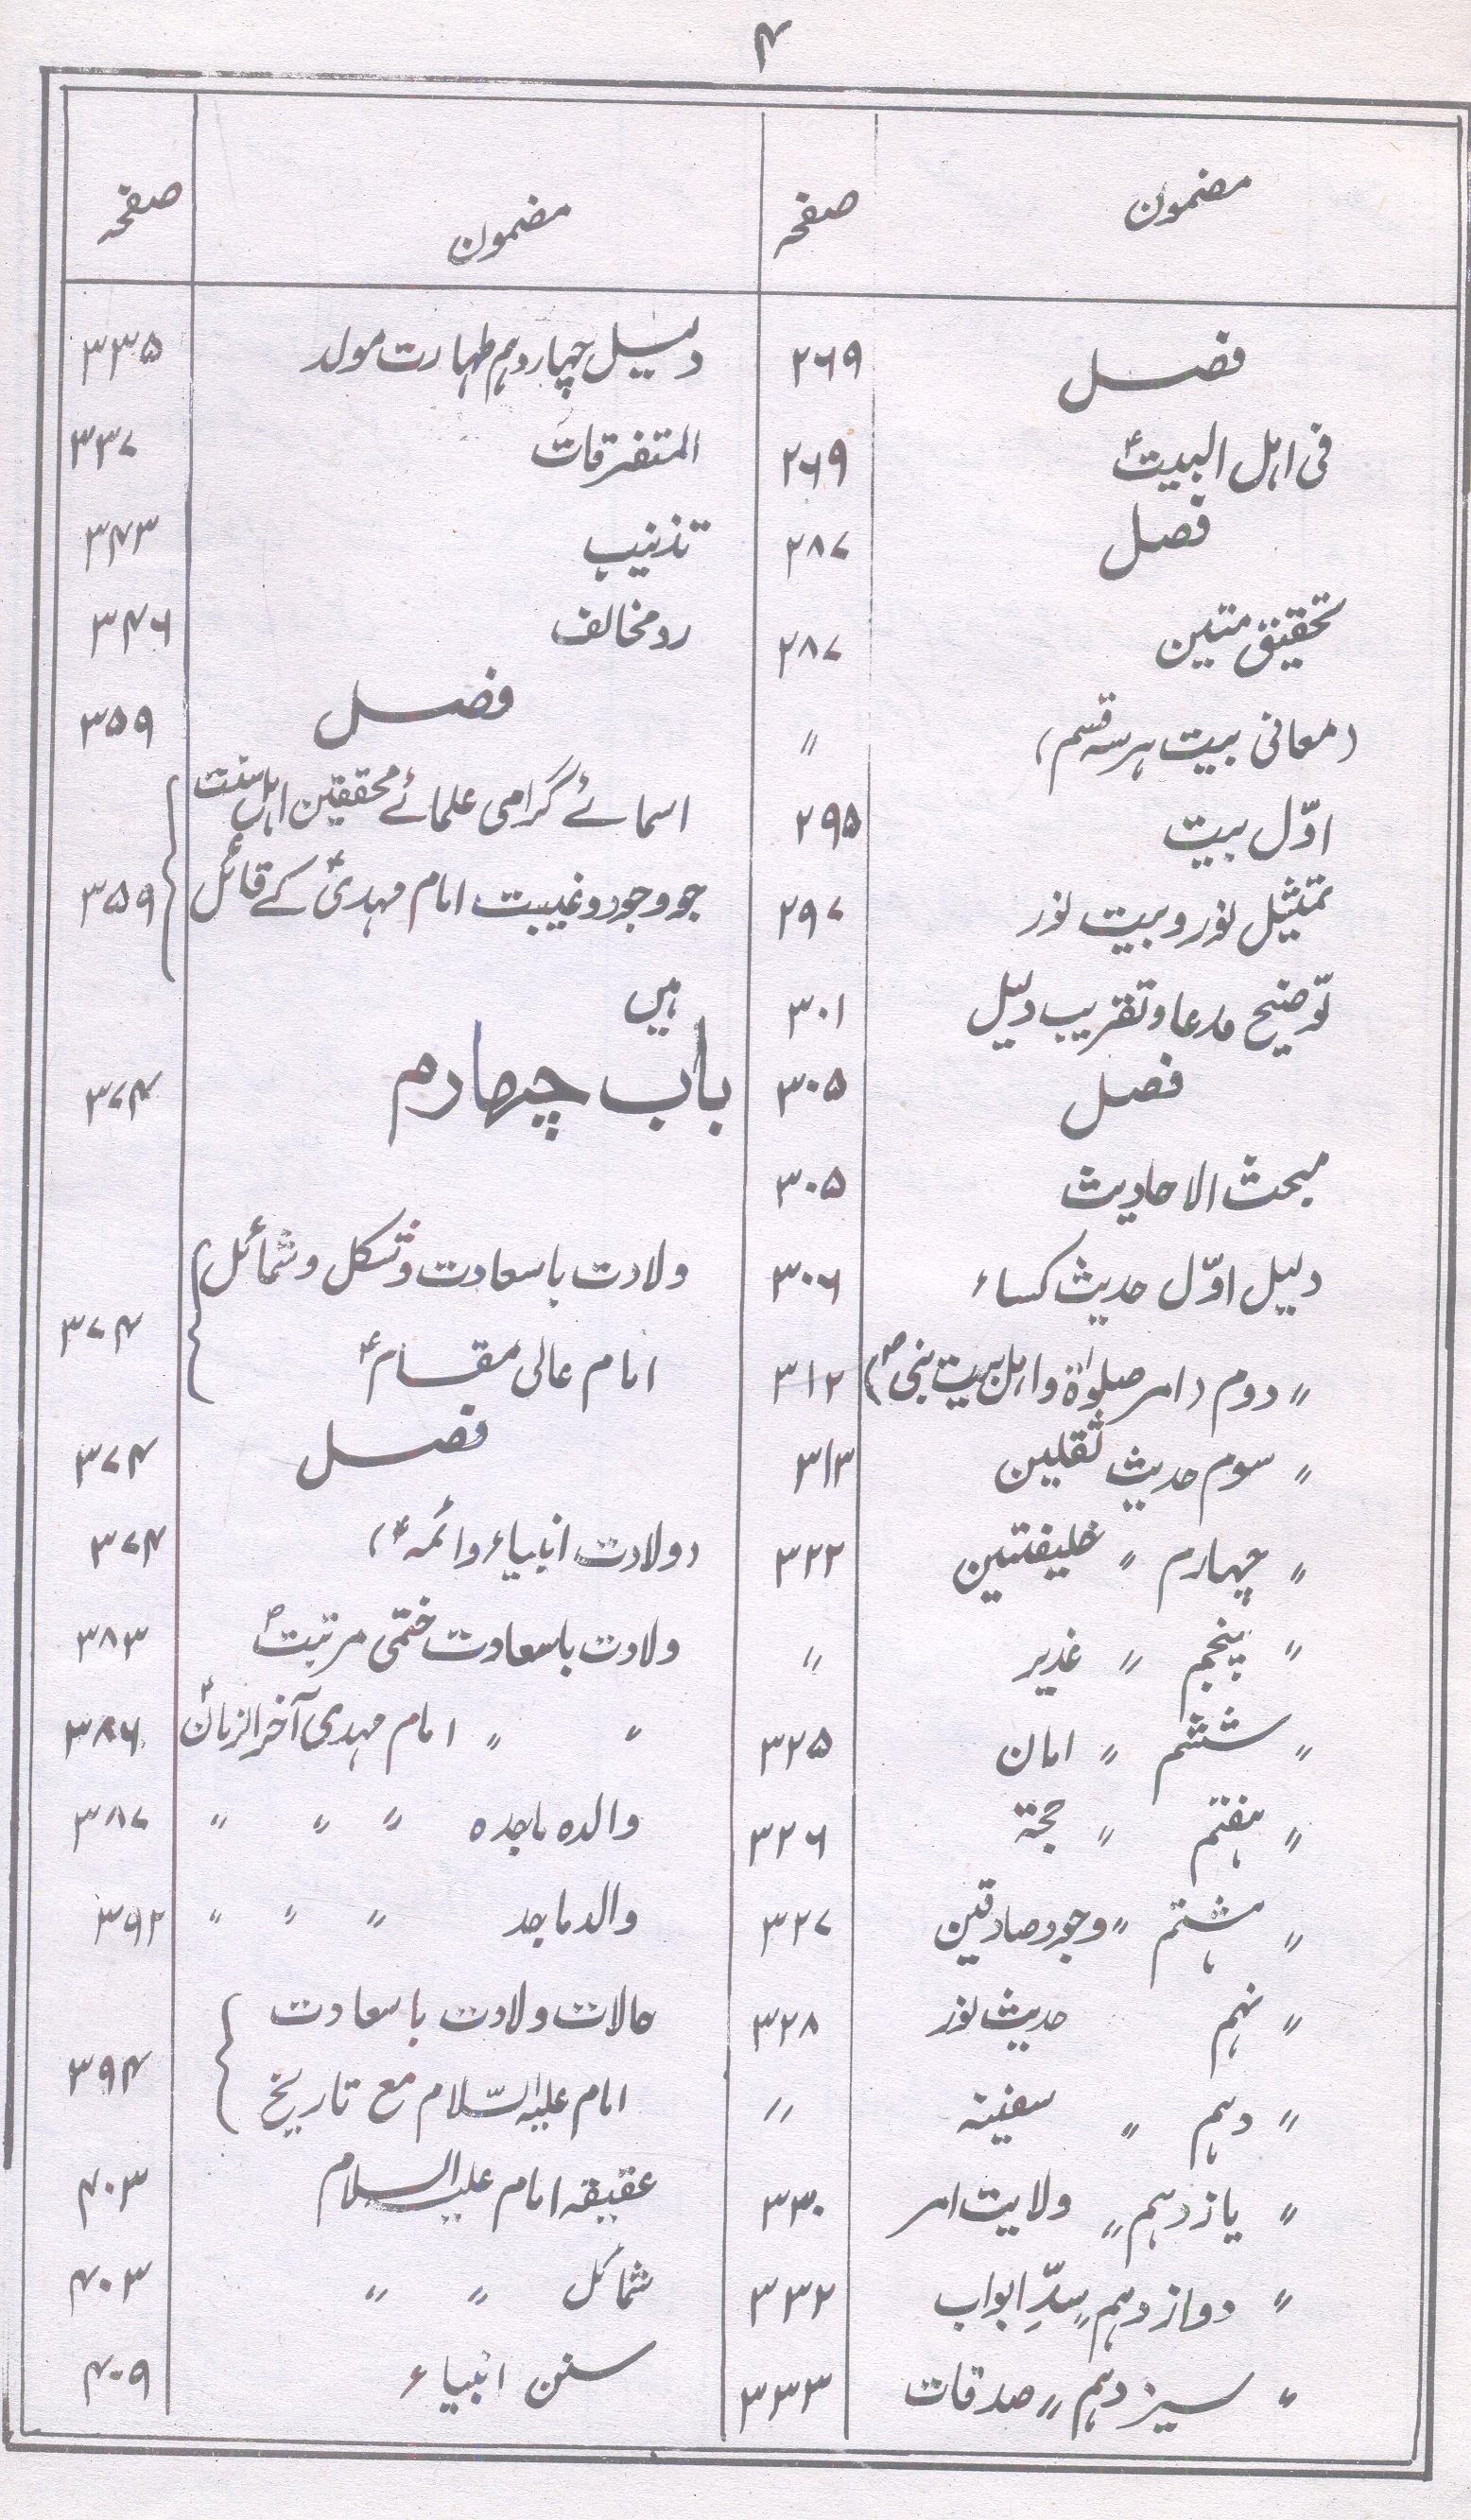 ۴
مضمون صفحہ
فصل ۲۶۹
فی اہل البیتؑ ۲۶۹
فصل ۲۸۷
تحقیق متین ۲۸۷
(معانی بیت ہرسہ قسم)〃
اوّل بیت ۲۹۵
تمثیل نور و بیت نور ۲۹۷
توضیح مدعا و تقریب دلیل ۳۰۱
فصل ۳۰۵
مبحث الاحادیث ۳۰۵
دلیل اوّل حدیث کساء ۳۰۶
〃 دوم (امر صلوٰۃ و اہل بیت نبیؐ) ۳۱۲
〃 سوم حدیث ثقلین ۳۱۳
〃 چہارم 〃 خلیفتین ۳۲۲
〃 پنجم 〃 غدیر 〃
〃 ششم 〃 امان ۳۲۵
〃 ہفتم 〃 حجۃ ۳۲۶
〃 ہشتم 〃 وجود صادقین ۳۲۷
〃 نہم حدیث نور ۳۲۸
〃 دہم 〃 سفینہ 〃
〃 یازدہم 〃 ولایت امر ۳۳۰
〃 دوازدہم 〃 سدِّ ابواب ۳۳۲
〃 سیزدہم 〃 صدقات ۳۳۳
مضمون صفحہ
دلیل چہاردہم طہارت مولد ۳۳۵
المتفرقات ۳۳۷
تذنیب ۳۴۳
رد مخالف ۳۴۶
فصل ۳۵۹
اسمائے گرامی علمائے محققین اہل سنت
جو وجود و غیبت امام مہدیؑ کے قائل ۳۵۹
ہیں
باب چہارم ۳۷۴
ولادت باسعادت و شکل و شمائل
امام عالی مقامؑ ۳۷۴
فصل ۳۷۴
(ولادت انبیاء و ائمہؑ) ۳۷۴
ولادت باسعادت ختمی مرتبتؐ ۳۸۳
〃 〃 امام مہدی آخرالزمانؑ ۳۸۶
والدہ ماجدہ 〃 〃 〃 ۳۸۷
والد ماجد 〃 〃 〃 ۳۹۲
حالات ولادت باسعادت
امام علیہ السّلام مع تاریخ ۳۹۴
عقیقہ امام علیہ السلام ۴۰۳
شمائل 〃 〃 ۴۰۳
سنن انبیاء ۴۰۹